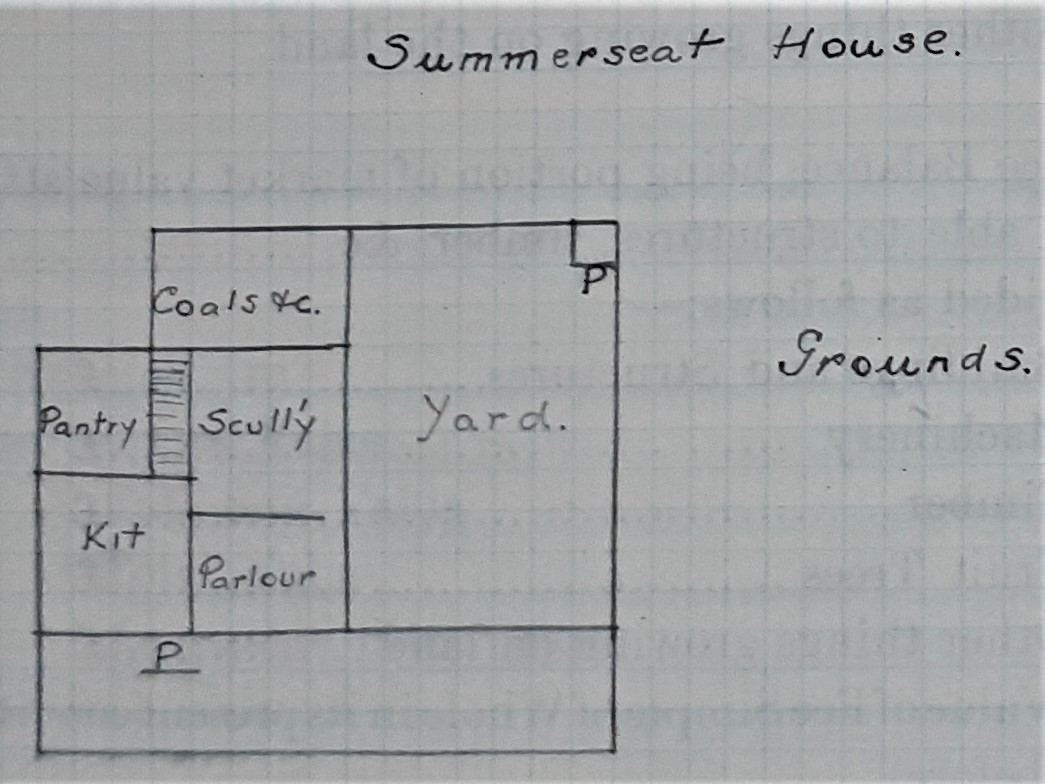 Summerseat House.
P
Coals &c.
Grounds.
Pantry
Scull'y
Yard.
Kit
Parlour
P